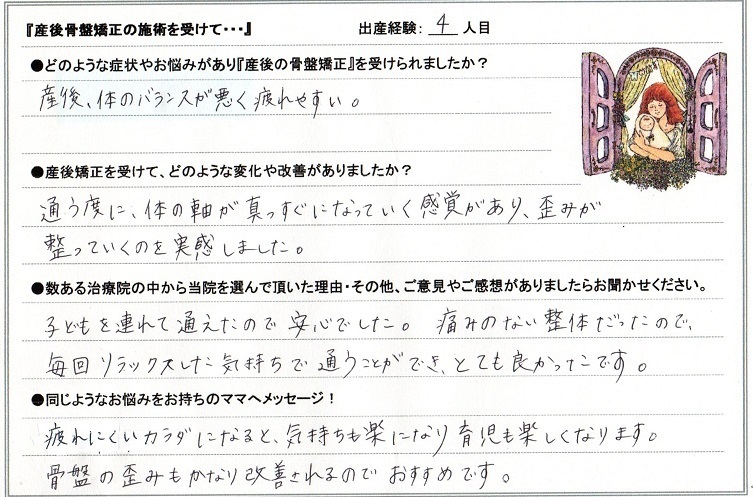 『産後骨盤矯正の施術を受けて・・・』 出産経験: 4 人目
●どのような症状やお悩みがあり『産後の骨盤矯正』を受けられましたか？
産後、体のバランスが悪く疲れやすい。
●産後矯正を受けて、どのような変化や改善がありましたか？
通う度に、体の軸が真っすぐになっていく感覚があり、歪みが
整っていくのを実感しました。
●数ある治療院の中から当院を選んで頂いた理由・その他、ご意見やご感想がありましたらお聞かせください。
子どもを連れて通えたので安心でした。 痛みのない整体だったので、
毎回リラックスした気持ちで通うことができ、とても良かったです。
●同じようなお悩みをお持ちのママへメッセージ！
疲れにくいカラダになると、気持ちも楽になり育児も楽しくなります。
骨盤の歪みもかなり改善されるのでおすすめです。